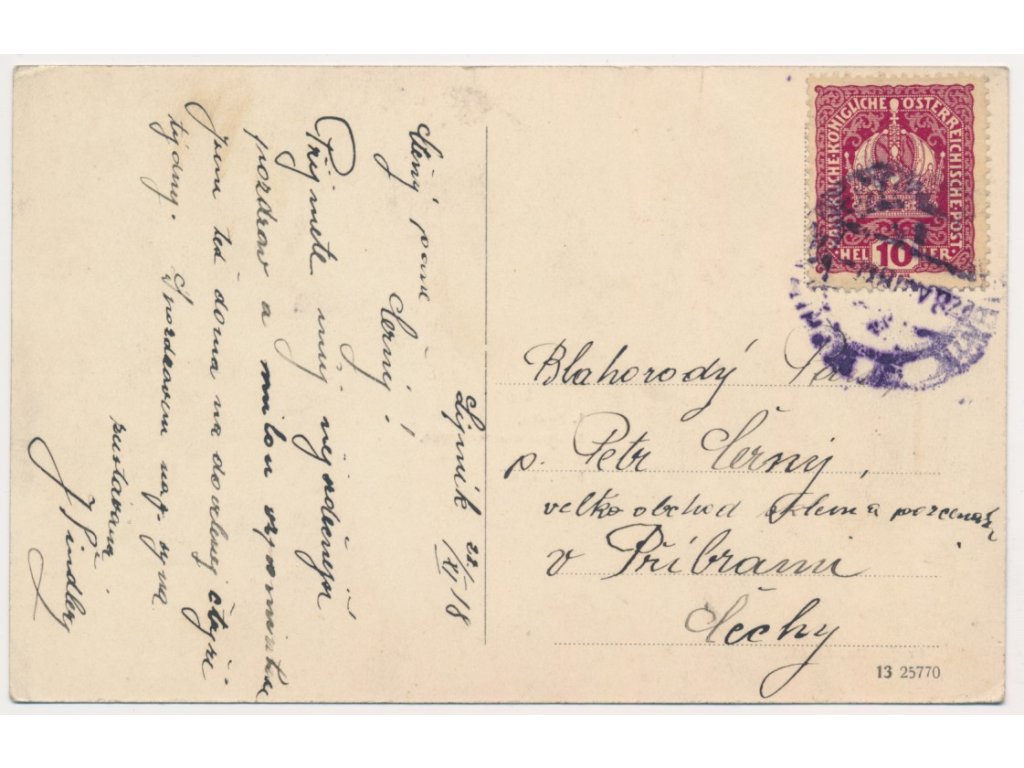 Ctěný pane
Černý!
Přijmete můj nejsrdečnější
pozdrav a milou vzpomínku
Jsem teď doma na dovolený čtyři
týdny. S pozdravem na
Lipník 28/XI 18
KAISERLICHE KÖNIGLICHE ÖSTERREICHISCHE POST
HELLER
10
Blahorodý Pan
p. Petr Černý,
velkoobchod sklem a porcenal.
v Příbrami
Čechy
13 25770